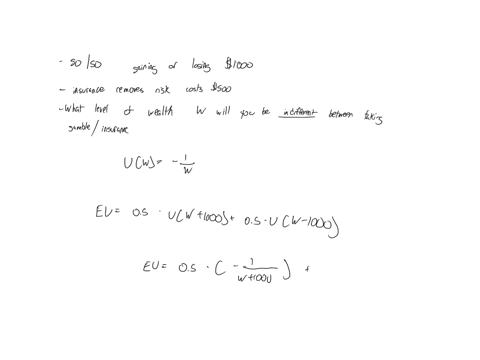 - 50/50 gaining or losing $1000
- insurance removes risk costs $500
- What level of wealth W will you be indifferent between taking
gamble/insurance
U(W) = -1/W
EU = 0.5 · U(W+1000) + 0.5 · U(W-1000)
EU = 0.5 · (-1/(W+1000)) +